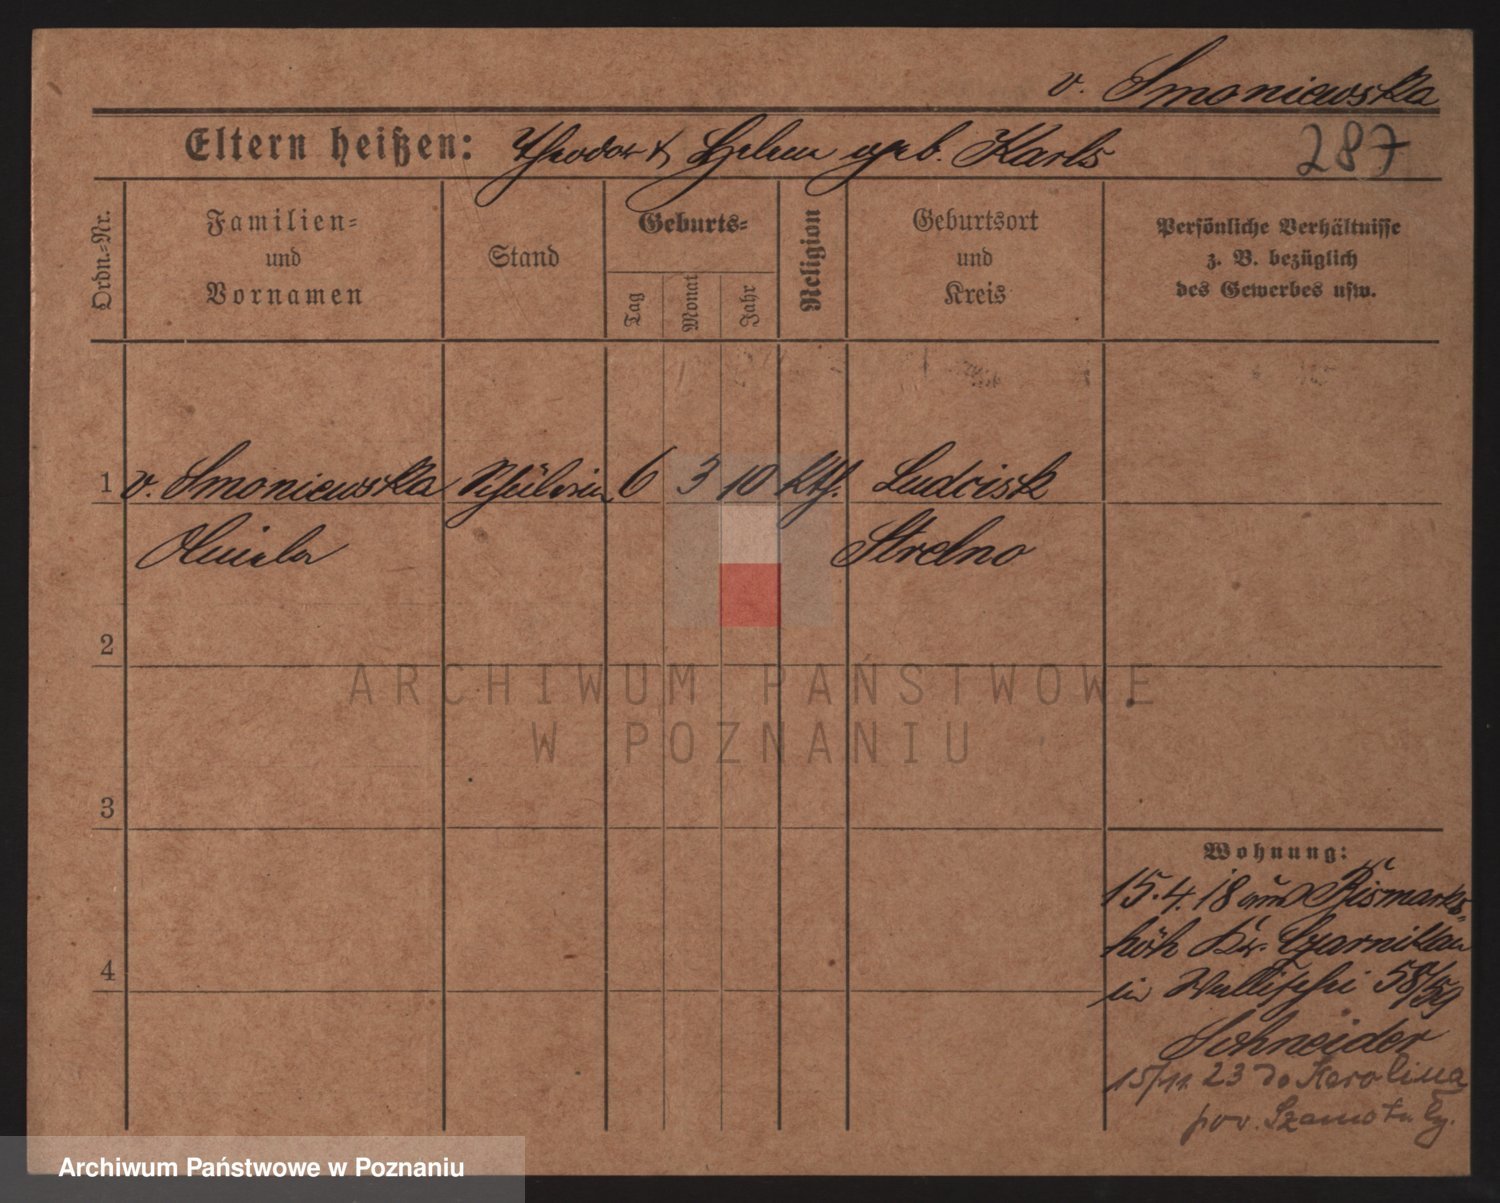 v. Smoniewska
Eltern heißen: Theodor & Helene geb. Karls
287
Ordn.-Nr.
Familien-
und
Vornamen
Stand
Geburts-
Tag
Monat
Jahr
Religion
Geburtsort
und
Kreis
Persönliche Verhältnisse
z. B. bezüglich
des Gewerbes usw.
1 v. Smoniewska Schülerin 6 3 10 kth. Ludcisk
Strelno
2
3
4
Wohnung:
15.4.18 aus Bismarks-
höh Kr. Czarnikau
in Wallischei 58/59
Schneider
15/11 23 do Karolina
pow. Szamotuły.
ARCHIWUM PAŃSTWOWE
W POZNANIU
Archiwum Państwowe w Poznaniu